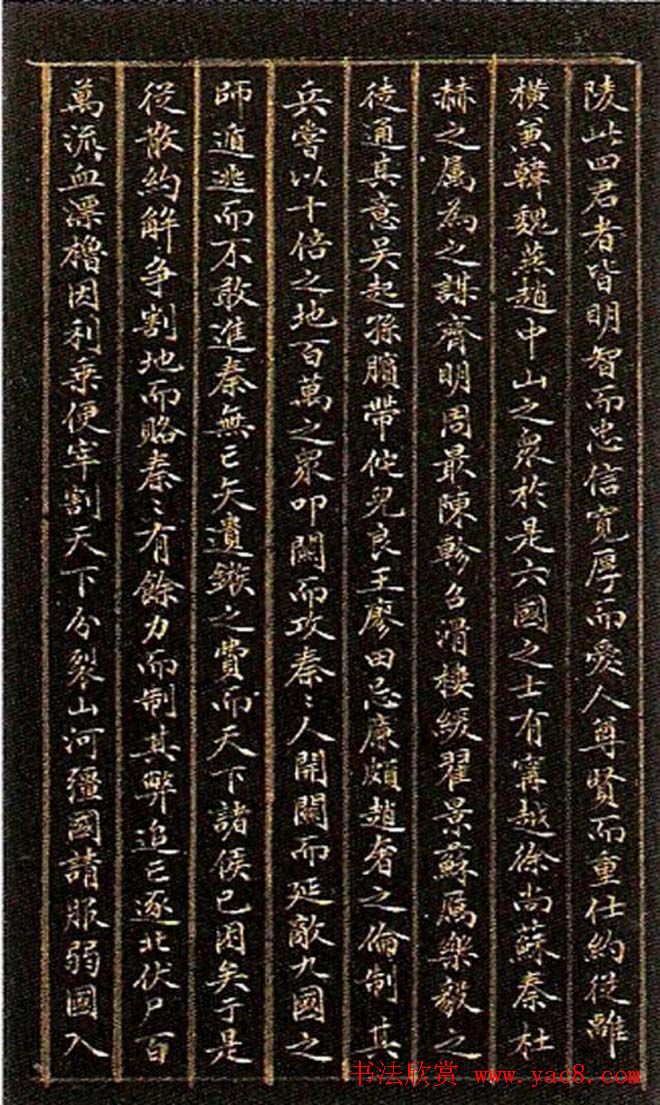 陵此四君者皆明智而忠信寬厚而愛人尊賢而重仕約從離
橫兼韓魏燕趙中山之衆於是六國之士有甯越徐尚蘇秦杜
赫之属為之謀齊明周最陳軫召滑樓緩翟景蘇厲樂毅之
徒通其意吴起孫臏帶佗兒良王廖田忌廉頗趙奢之倫制其
兵嘗以十倍之地百萬之衆叩關而攻秦〻人開關而延敵九國之
師遁逃而不敢進秦無亡矢遺鏃之費而天下諸侯已困矣于是
從散約解爭割地而賂秦〻有餘力而制其弊追亡逐北伏尸百
萬流血漂櫓因利乗便宰割天下分裂山河彊國請服弱國入
书法欣赏 www.yac8.com